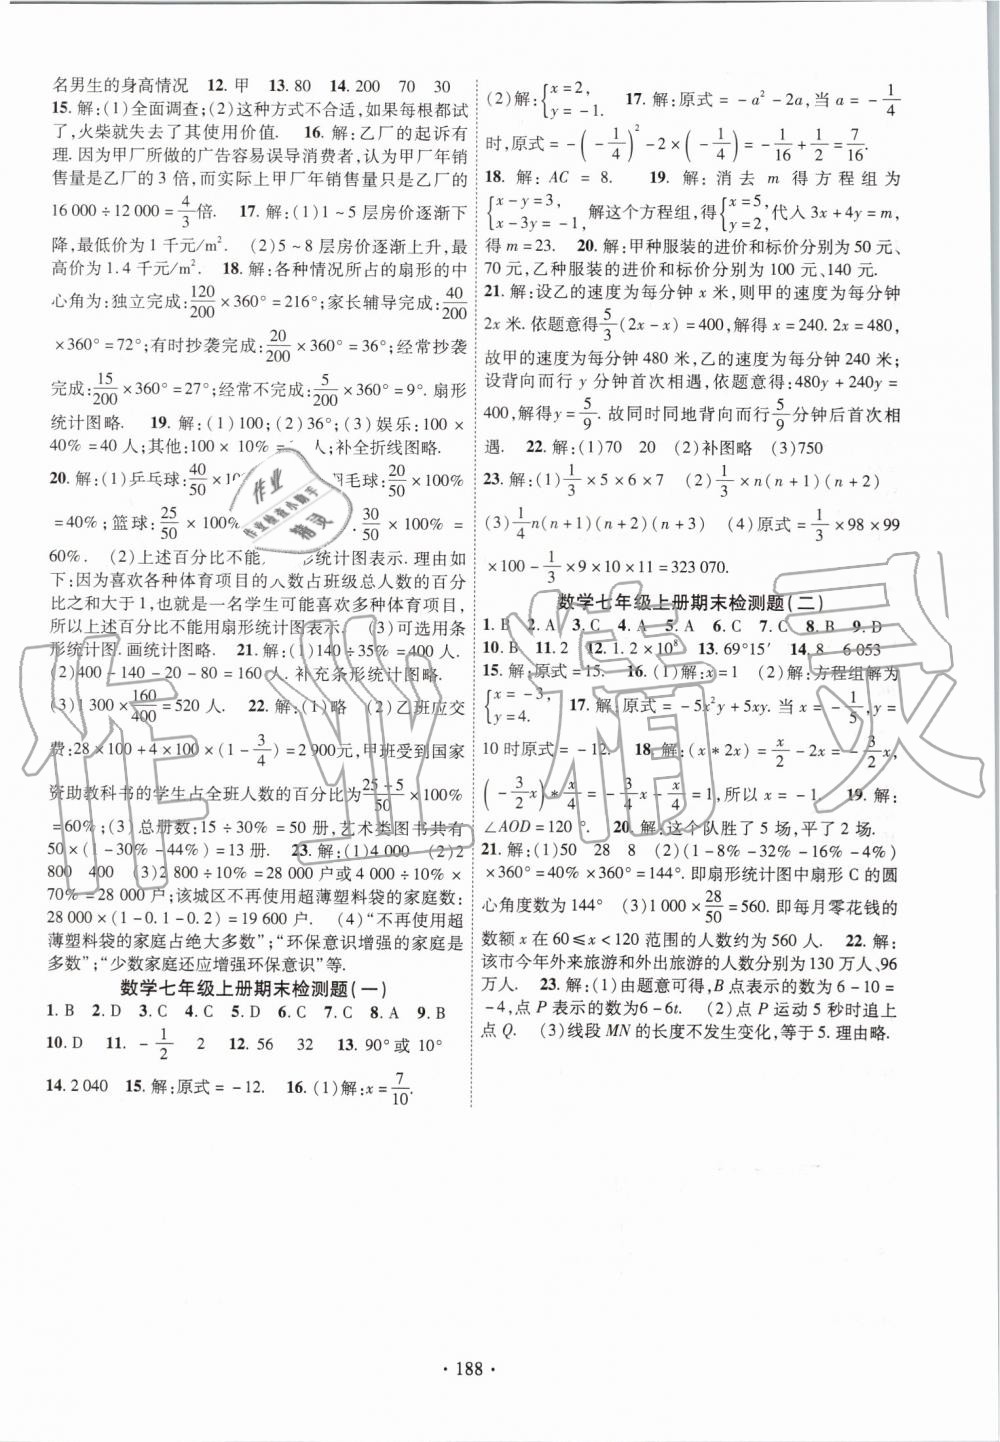 名男生的身高情况 12. 甲 13. 80 14. 200 70 30
15. 解:(1)全面调查;(2)这种方式不合适,如果每根都试
了,火柴就失去了其使用价值. 16. 解:乙厂的起诉有
理. 因为甲厂所做的广告容易误导消费者,认为甲厂年销
售量是乙厂的 3 倍,而实际上甲厂年销售量只是乙厂的
16 000÷12 000=4/3倍. 17. 解:(1)1~5 层房价逐渐下
降,最低价为 1 千元/m². (2)5~8 层房价逐渐上升,最
高价为 1.4 千元/m². 18. 解:各种情况所占的扇形的中
心角为:独立完成:120/200×360°=216°;家长辅导完成:40/200
×360°=72°;有时抄袭完成:20/200×360°=36°;经常抄袭
完成:15/200×360°=27°;经常不完成:5/200×360°=9°. 扇形
统计图略. 19. 解:(1)100;(2)36°;(3)娱乐:100×
40%=40 人;其他:100×10%= 人;补全折线图略.
20. 解:(1)乒乓球:40/50×10 羽毛球:20/50×100%
=40%;篮球:25/50×100% 30/50×100%=
60%. (2)上述百分比不能 形统计图表示. 理由如
下:因为喜欢各种体育项目的人数占班级总人数的百分
比之和大于 1,也就是一名学生可能喜欢多种体育项目,
所以上述百分比不能用扇形统计图表示. (3)可选用条
形统计图. 画统计图略. 21. 解:(1)140÷35%=400 人.
(2)400-140-20-80=160 人. 补充条形统计图略.
(3)1 300×160/400=520 人. 22. 解:(1)略 (2)乙班应交
费:28×100+4×100×(1-3/4)=2 900元,甲班受到国家
资助教科书的学生占全班人数的百分比为25+5/50×100%
=60%;(3)总册数:15÷30%=50 册,艺术类图书共有
50×(1-30%-44%)=13 册. 23. 解:(1)4 000 (2)2
800 400 (3)2 800×10=28 000 户或4 000×10×
70%=28 000 户;该城区不再使用超薄塑料袋的家庭数:
28 000×(1-0.1-0.2)=19 600 户. (4)“不再使用超
薄塑料袋的家庭占绝大多数”;“环保意识增强的家庭是
多数”;“少数家庭还应增强环保意识”等.
数学七年级上册期末检测题(一)
1. B 2. D 3. C 4. C 5. B 6. D 7. C 8. A 9. B
10. D 11. -1/2 2 12. 56 32 13. 90°或 10°
14. 2 040 15. 解:原式=-12. 16. (1)解:x=7/10.
(2)解:{x=2, y=-1. 17. 解:原式=-a²-2a,当 a=-1/4
时,原式=-(-1/4)²-2×(-1/4)=-1/16+1/2=7/16.
18. 解:AC=8. 19. 解:消去 m 得方程组为
{x-y=3, x-3y=-1, 解这个方程组,得{x=5, y=2,代入 3x+4y=m,
得 m=23. 20. 解:甲种服装的进价和标价分别为 50 元、
70 元,乙种服装的进价和标价分别为 100 元、140 元.
21. 解:设乙的速度为每分钟 x 米,则甲的速度为每分钟
2x 米. 依题意得5/3(2x-x)=400,解得 x=240. 2x=480,
故甲的速度为每分钟 480 米,乙的速度为每分钟 240 米;
设背向而行 y 分钟首次相遇,依题意得:480y+240y=
400,解得y=5/9. 故同时同地背向而行5/9分钟后首次相
遇. 22. 解:(1)70 20 (2)补图略 (3)750
23. 解:(1)1/3×5×6×7 (2)1/3×n(n+1)(n+2)
(3)1/4n(n+1)(n+2)(n+3) (4)原式=1/3×98×99
×100-1/3×9×10×11=323 070.
数学七年级上册期末检测题(二)
1. B 2. A 3. C 4. A 5. A 6. C 7. C 8. B 9. D
10. B 11. 2 12. 1.2×10⁸ 13. 69°15′ 14. 8 6 053
15. 解:原式=15. 16. (1)解:x=1 (2)解:方程组解为
{x=-3, y=4. 17. 解:原式=-5x²y+5xy. 当 x=-1/5,y=
10 时原式=-12. 18. 解:(x*2x)=x/2-2x=-3/2x,
(-3/2x)*x/4=-3/4x-x/4=1,所以 x=-1 19. 解:
∠AOD=120°. 20. 解:这个队胜了 5 场,平了 2 场.
21. 解:(1)50 28 8 (2)(1-8%-32%-16%-4%)
×360°=40%×360°=144°. 即扇形统计图中扇形 C 的圆
心角度数为 144° (3)1 000×28/50=560. 即每月零花钱的
数额 x 在 60≤x<120 范围的人数约为 560 人. 22. 解:
该市今年外来旅游和外出旅游的人数分别为 130 万人、96
万人. 23. 解:(1)由题意可得,B 点表示的数为 6-10=
-4,点 P 表示的数为6-6t. (2)点 P 运动 5 秒时追上
点 Q. (3)线段 MN 的长度不发生变化,等于 5. 理由略.
· 188 ·
作业精灵
作业
作业检查小助手
精灵